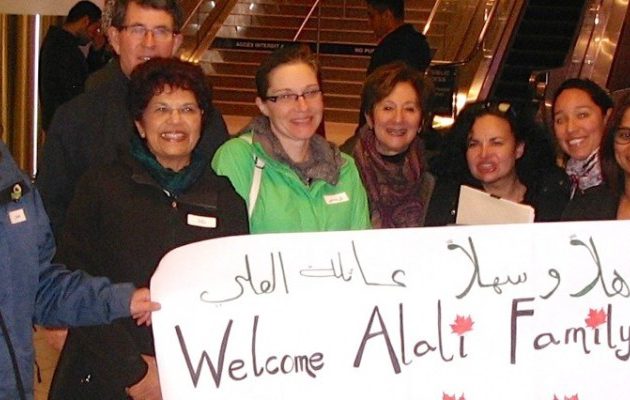 ACCÈS INTERDIT
هلاً و سهلاً عائلة العلي
Welcome Alali Family